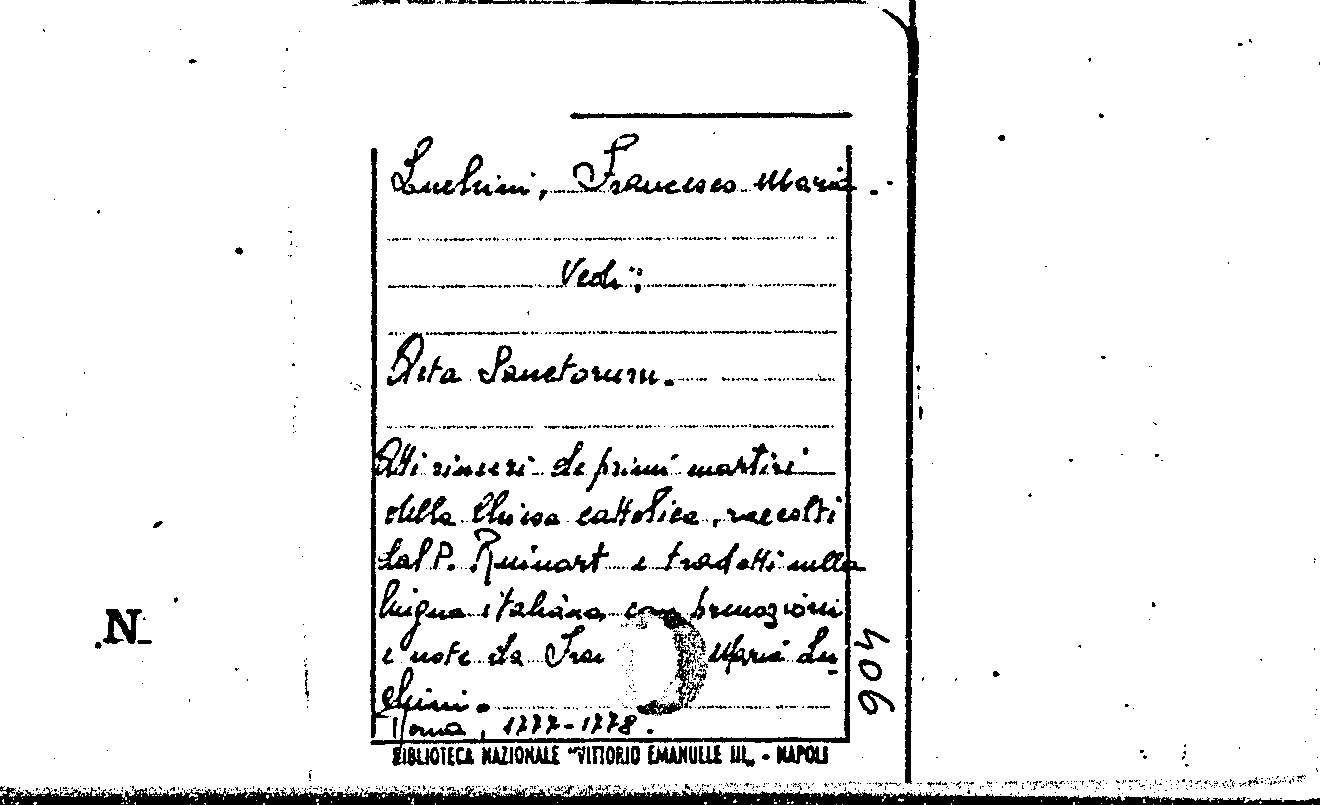 Luchini, Francesco Maria.
Vedi:
Acta Sanctorum.
Atti sinceri de primi martiri
della Chiesa cattolica, raccolti
dal P. Ruinart e tradotti nella
lingua italiana con prenozioni
e note da Fran Maria Lu
chini.
Roma, 1777-1778.
BIBLIOTECA NAZIONALE "VITTORIO EMANUELE III„ - NAPOLI
N
904